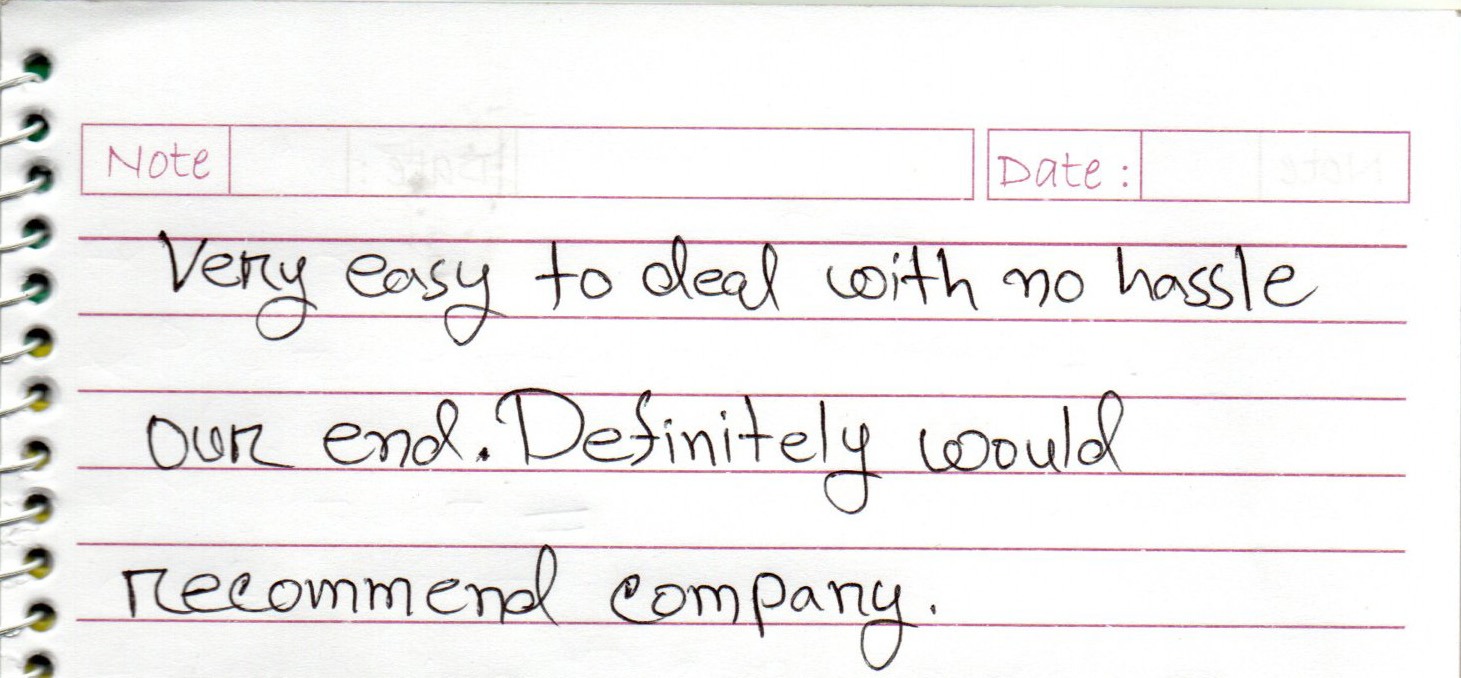 Note
Date :
Very easy to deal with no hassle
our end. Definitely would
recommend company.